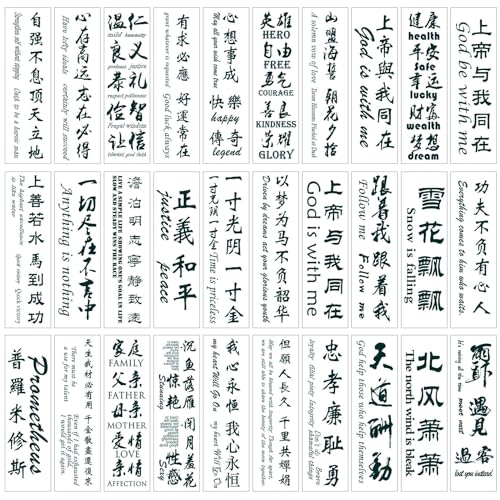 自强不息 顶天立地
Strengthen self without stopping Oath to be a heroic man
心存高远 志在必得
Have lofty ideals certainly will succeed
温 仁
mild humanity
良 义
goodness justice
恭 礼
respect politeness
俭 智
Frugal wisdom
让 信
tolerant good faith
有求必應 好運常在
grant whatever is requested Good luck always
心想事成
May all your wish come true
快樂
happy
傳奇
legend
英雄
HERO
自由
FREE
勇气
COURAGE
善良
KINDNESS
荣耀
GLORY
山盟海誓 朝花夕拾
A solemn vow of love Dawn Blossoms Plucked at Dusk
上帝與我同在
God is with me
健康
health
平安
safe
幸運
lucky
財富
wealth
夢想
dream
上帝与我同在
God be with me
上善若水 馬到成功
The highest excellence is like water Quick victory
一切尽在不言中
Anything is nothing
LIVE A SIMPLE LIFE SHOWING ONE'S GOAL IN LIFE
SLOW AND STEADY WINS THE RACE
澹泊明志 寧静致遠
正義和平
justice peace
一寸光阴一寸金
一寸光阴一寸金 Time is priceless
以梦为马 不负韶华
Driven by dreams and live your glorious youth
上帝与我同在
God is with me
跟着我 跟着我
Follow me Follow me
雪花飘飘
Snow is falling
功夫不负有心人
Everything comes to him who waits.
Prometheus
普羅米修斯
天生我材必有用 千金散盡還復來
There must be a use for my talent
家庭
FAMILY
父亲
FATHER
母亲
MOTHER
爱情
LOVE
亲情
AFFECTION
沉鱼落雁 闭月羞花
惊艳
Stunning
性感
Sexy
我心永恒 我心永恒
my heart Will Go On my heart Will Go On
但願人長久 千里共嬋娟
忠孝廉耻勇
loyalty filial piety Integrity
天道酬勤
God help those who help themselves
北风萧萧
The north wind is bleak
雨邸
遇見
meet
過客